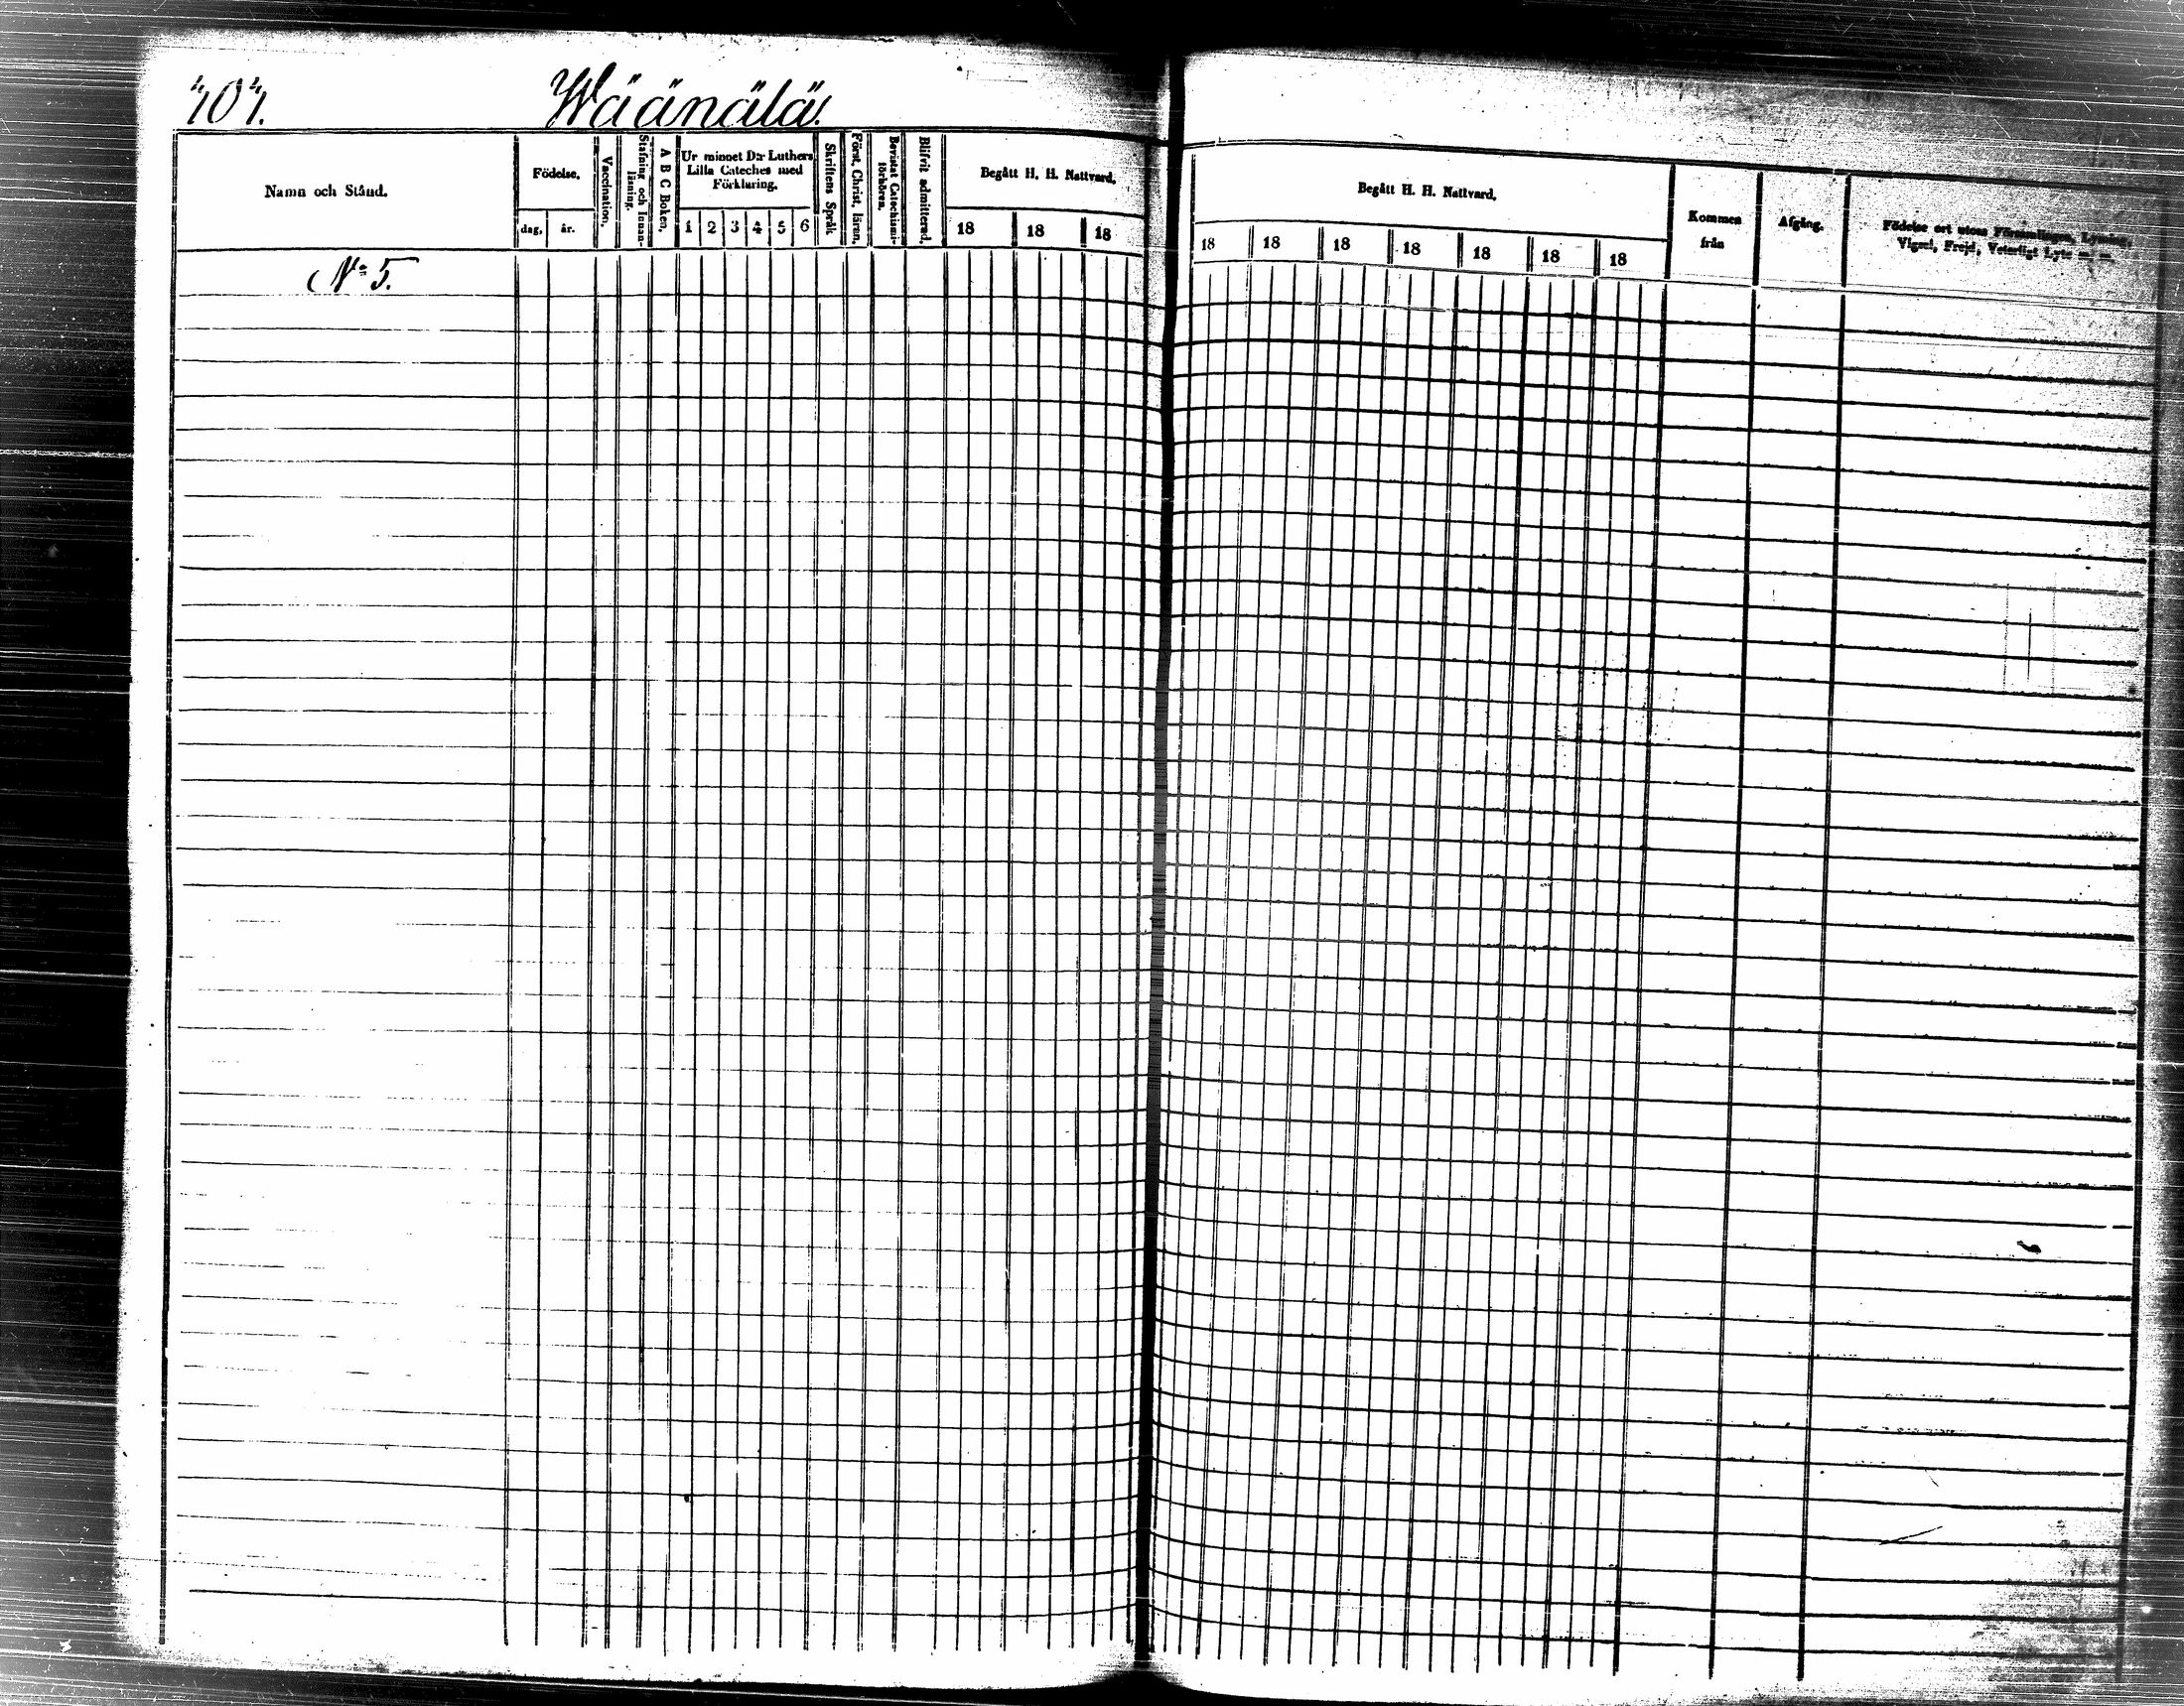 404.
Wäänälä.
Namn och Stånd.
Födelse.
dag.
år.
Vaccination.
Stafning och Innan-
läsning.
A B C Boken.
Ur minnet D:r Luthers
Lilla Cateches med
Förklaring.
1 2 3 4 5 6
Skriftens Språk.
Först. Christ. läran.
Bevistat Catechismi-
förhören.
Blifvit admitterad.
Begått H. H. Nattvard.
18 18 18
Begått H. H. Nattvard.
18 18 18 18 18 18 18
Kommen
från
Afgång.
Födelse ort utom Församlingen, Lysning,
Vigsel, Frejd, Veterligt Lyte m. m.
No 5.